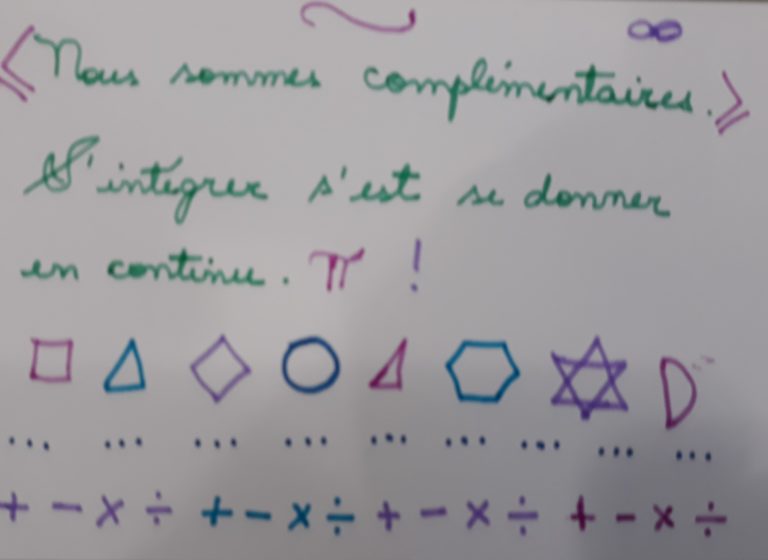 ∞
《Nous sommes complémentaires.》
S'intégrer s'est se donner
en continu. π !
... ... ... ... ... ... ... ... ...
+ - × ÷ + - × ÷ + - × ÷ + - × ÷